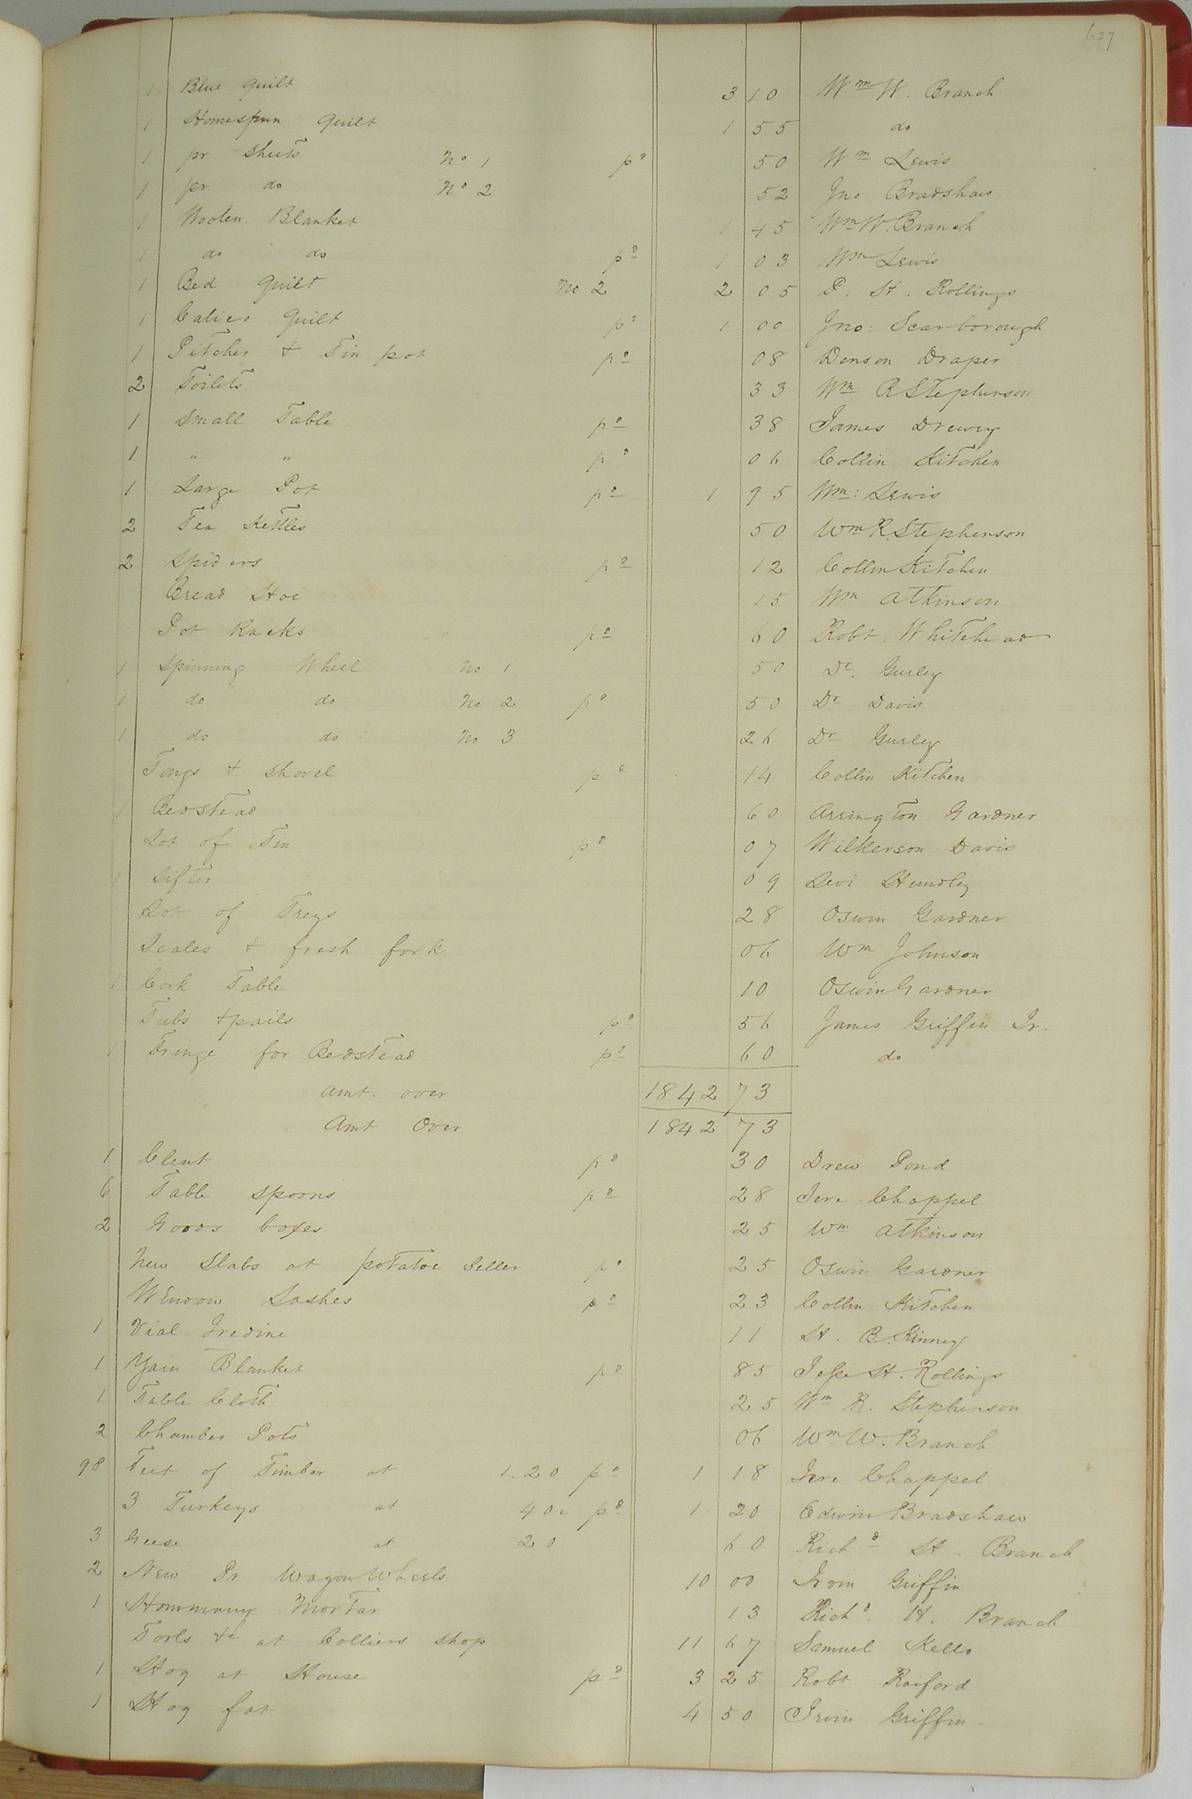 627
1 Blue quilt 3 10 Wm W. Branch
1 Homespun quilt 1 55 do
1 pr sheets No 1 pd 50 Wm Lewis
1 pr do No 2 52 Jno Bradshaw
1 Woolen Blanket 1 45 Wm W. Branch
1 do do pd 1 03 Wm Lewis
1 Bed quilt No 2 2 05 P. H. Rollings
1 Calico quilt pd 1 00 Jno: Scarborough
1 Pitcher & Tin pot pd 08 Denson Draper
2 Toilets 33 Wm R Stephenson
1 Small Table pd 38 James Drewry
1 " " pd 06 Collin Kitchen
1 Large Pot pd 1 95 Wm: Lewis
2 Tea Kettles 50 Wm R. Stephenson
2 Spiders pd 12 Collin Kitchen
Bread Hoe 15 Wm Atkinson
Pot Racks pd 60 Robt Whitehead
1 Spinning Wheel No 1 50 Dr. Gurley
1 do do No 2 pd 50 Dr Davis
1 do do No 3 26 Dr Gurley
Tongs & shovel pd 14 Collin Kitchen
1 Bedstead 60 Arrington Gardner
Lot of Tin pd 07 Wilkerson Davis
1 Sifter 09 Levi Humdley
Lot of Treys 28 Oswin Gardner
Scales & fresh fork 06 Wm Johnson
1 Cork Table 10 Oswin Gardner
Tubs & pails pd 56 James Griffin Jr.
1 Fringe for Bedstead pd 60 do
amt. over 1842 73
Amt Over 1842 73
1 Clent pd 30 Drew Pond
6 Table spoons pd 28 Jere Chappel
2 Goods boxes 25 Wm Atkinson
New Slabs at potatoe Seller pd 25 Oswin Gardner
Window Sashes pd 23 Collin Kitchen
1 Vial Iredine 11 H. B. Kinney
1 Yarn Blanket pd 85 Jesse H. Rollings
1 Table Cloth 25 Wm R. Stephenson
2 Chamber Pots 06 Wm W. Branch
98 Feet of Timber at 1.20 pd 1 18 Jere Chappel
3 Turkeys at 40c pd 1 20 Edwin Bradshaw
3 Geese at 20 60 Richd H. Branch
2 New Pr Wagon Wheels 10 00 Irvin Griffin
1 Hommony Mortar 13 Richd. H. Branch
Torls &c at Colliers shop 11 67 Samuel Kello
1 Hog at House pd 3 25 Robt Raiford
1 Hog fat 4 50 Irvin Griffin